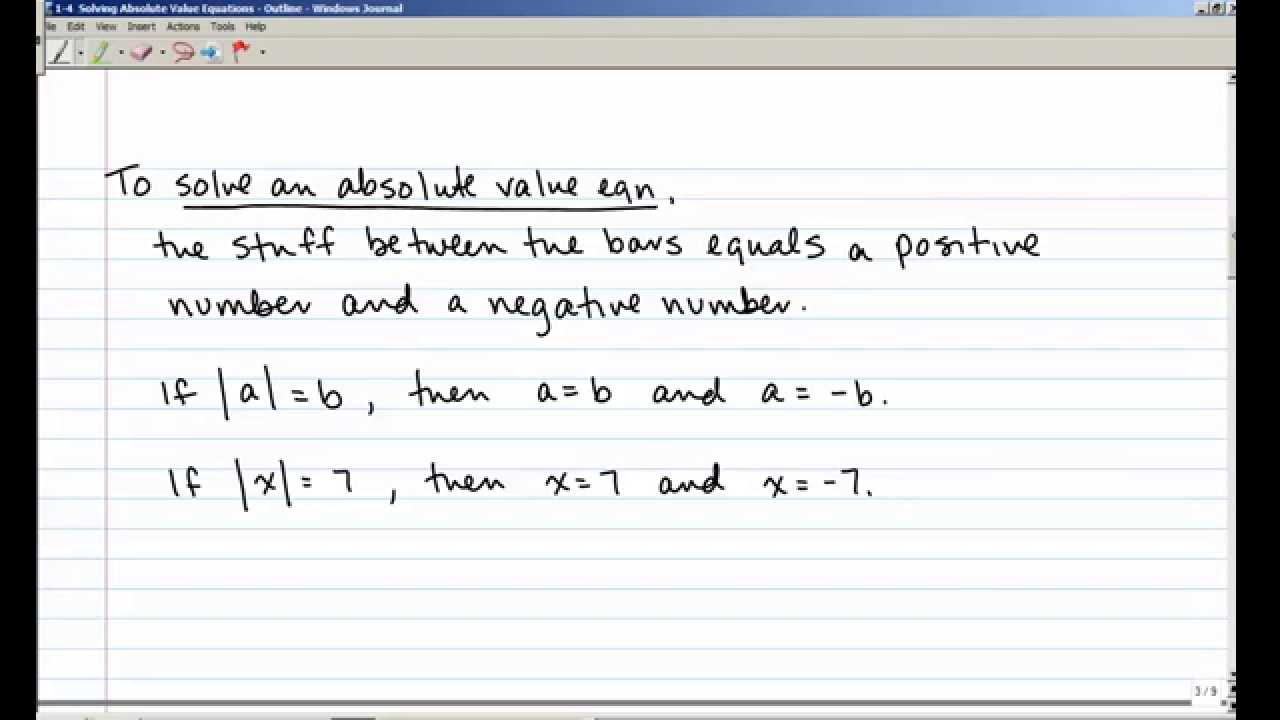 1-4 Solving Absolute Value Equations - Outline - Windows Journal
ile Edit View Insert Actions Tools Help
To solve an absolute value eqn,
the stuff between the bars equals a positive
number and a negative number.
If |a| = b, then a = b and a = -b.
If |x| = 7, then x = 7 and x = -7.
3 / 9